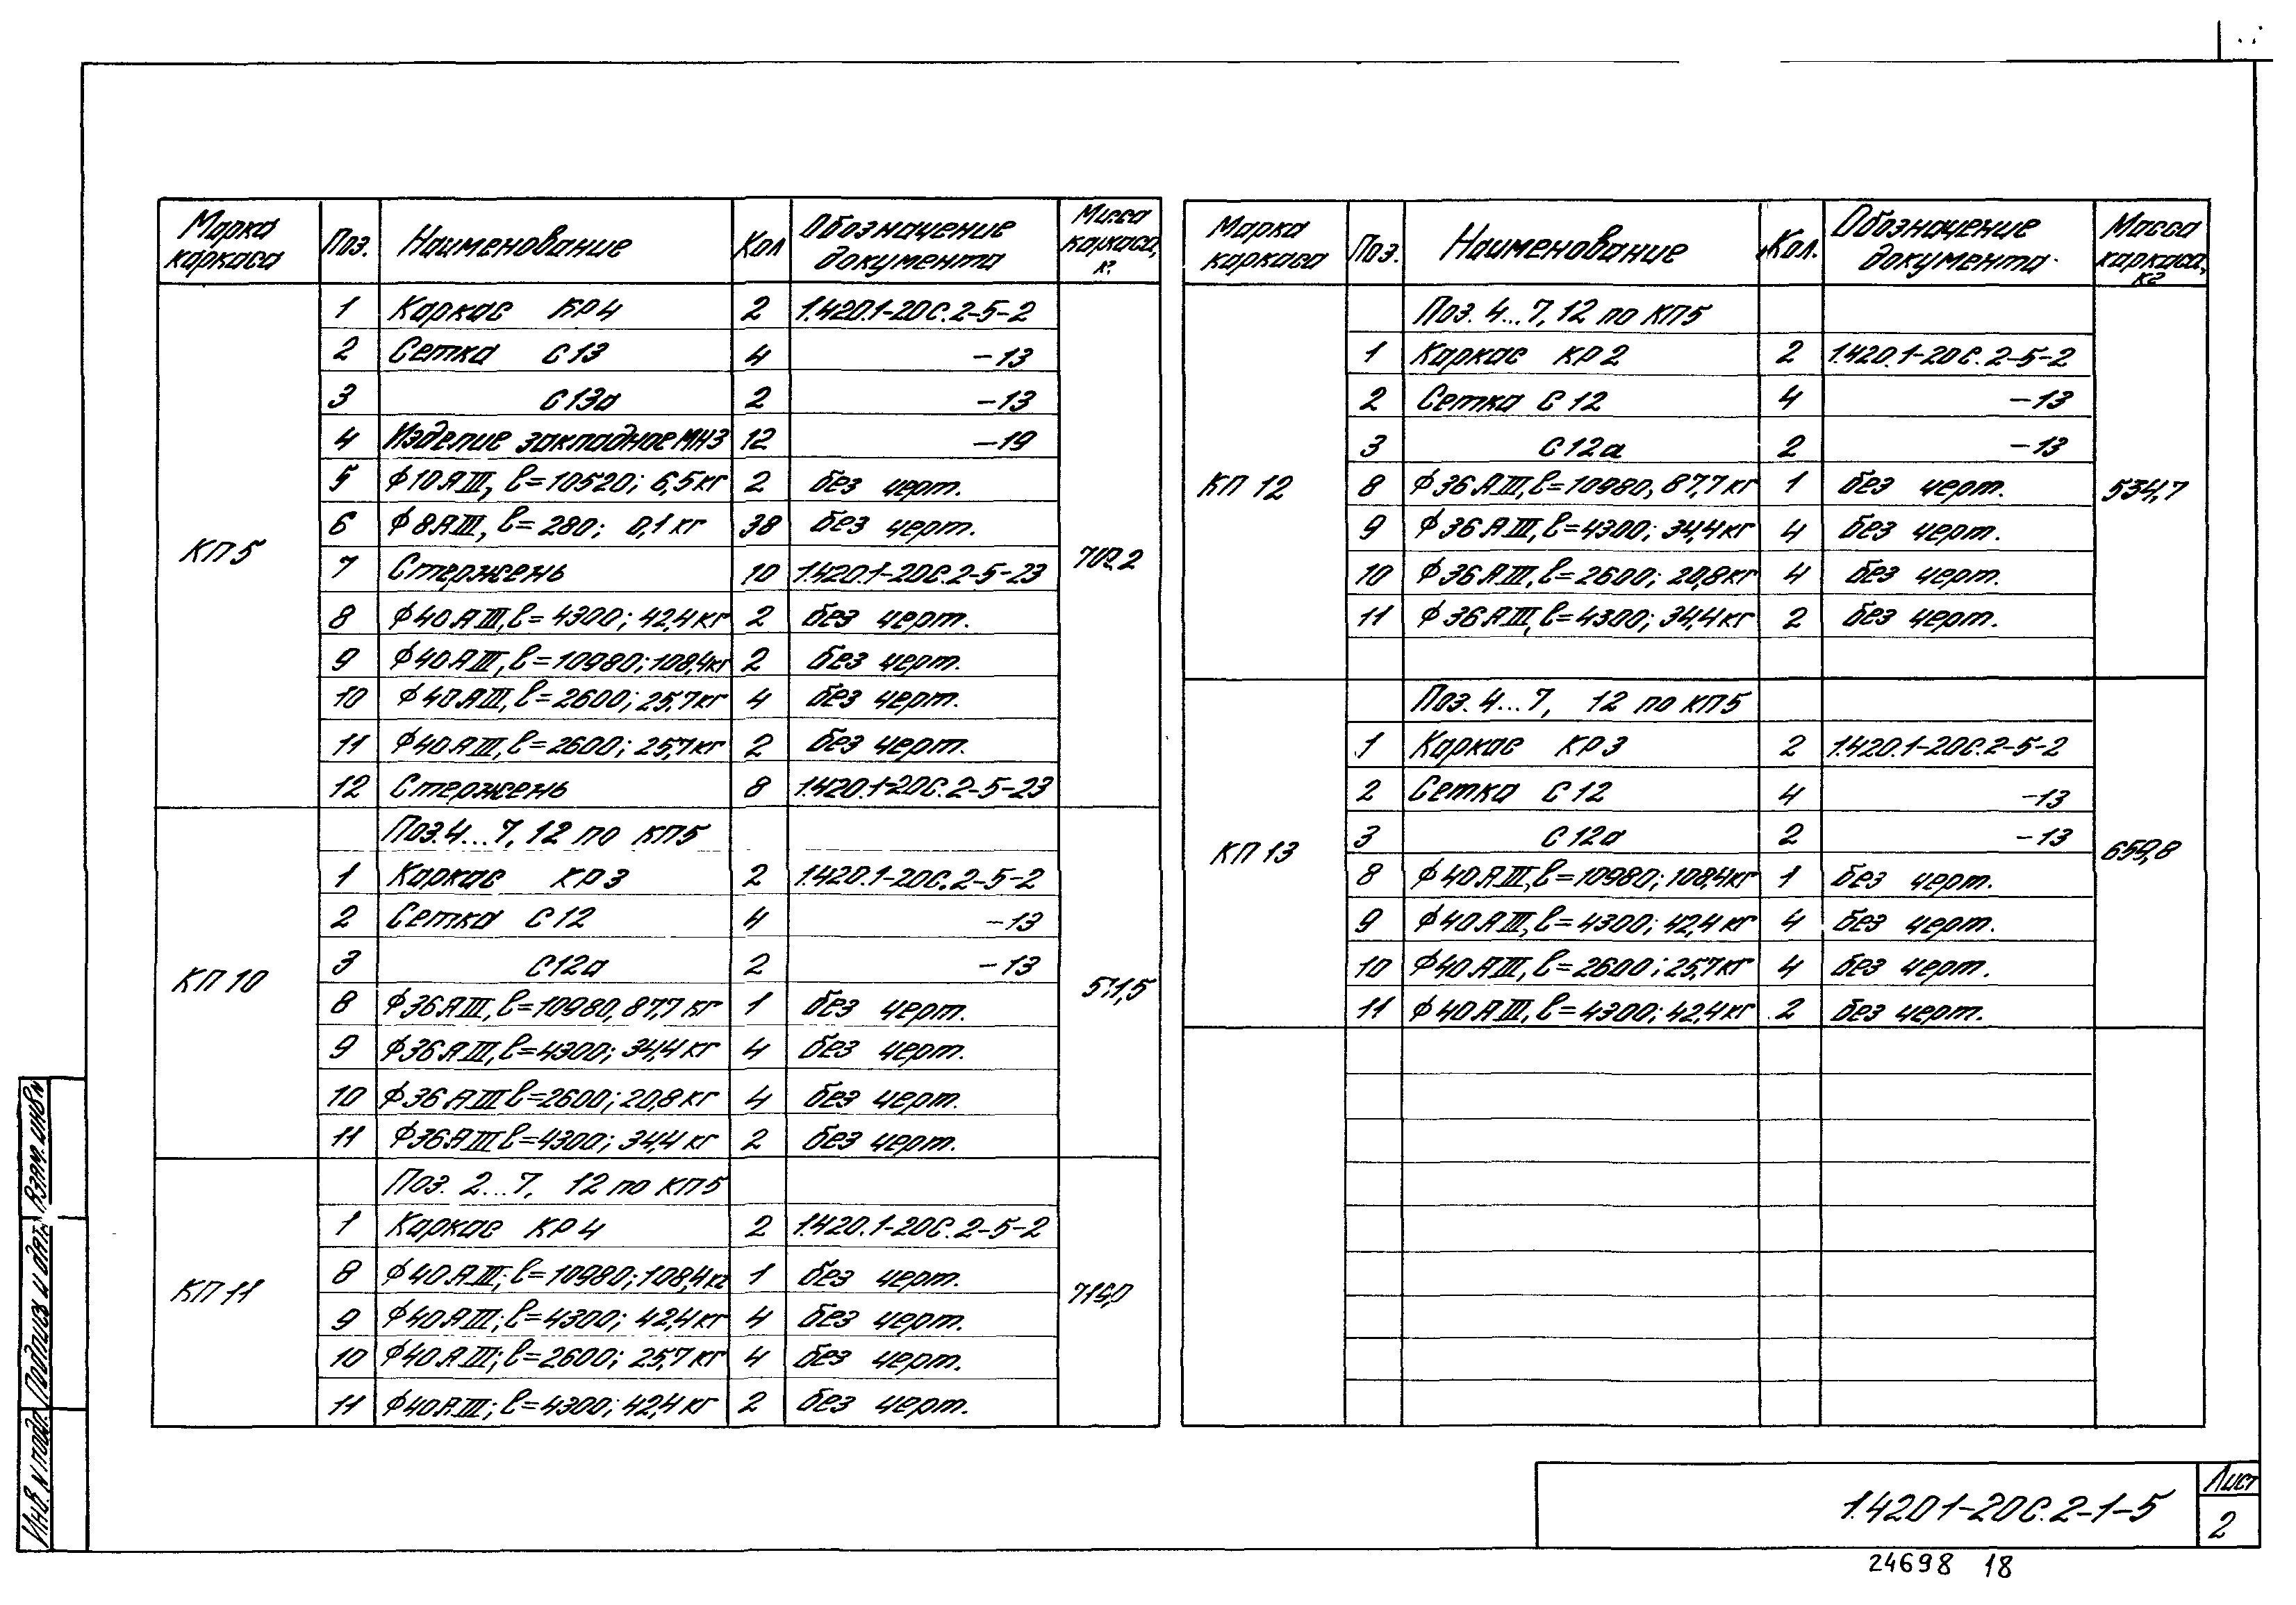 Марка каркаса Поз. Наименование Кол Обозначение документа Масса каркаса, кг
КП5
1 Каркас КР4 2 1.420.1-20С.2-5-2
2 Сетка С13 4 -13
3 С13а 2 -13
4 Изделие закладное МН3 12 -19
5 ф10АIII, ℓ=10520; 6,5кг 2 без черт.
6 ф8АIII, ℓ=280; 0,1кг 38 без черт.
7 Стержень 10 1.420.1-20С.2-5-23
8 ф40АIII, ℓ=4300; 42,4кг 2 без черт.
9 ф40АIII, ℓ=10980; 108,4кг 2 без черт.
10 ф40АIII, ℓ=2600; 25,7кг 4 без черт.
11 ф40АIII, ℓ=2600; 25,7кг 2 без черт.
12 Стержень 8 1.420.1-20С.2-5-23
КП10
Поз.4...7,12 по КП5
1 Каркас КР3 2 1.420.1-20С.2-5-2
2 Сетка С12 4 -13
3 С12а 2 -13
8 ф36АIII, ℓ=10980, 87,7 кг 1 без черт.
9 ф36АIII, ℓ=4300; 34,4 кг 4 без черт.
10 ф36АIII ℓ=2600; 20,8кг 4 без черт.
11 ф36АIII ℓ=4300; 34,4 кг 2 без черт.
КП11
Поз. 2...7, 12 по КП5
1 Каркас КР4 2 1.420.1-20С.2-5-2
8 ф40АIII; ℓ=10980; 108,4кг 1 без черт.
9 ф40АIII; ℓ=4300; 42,4кг 4 без черт.
10 ф40АIII; ℓ=2600; 25,7кг 4 без черт.
11 ф40АIII; ℓ=4300; 42,4кг 2 без черт.
Марка каркаса Поз. Наименование Кол. Обозначение документа Масса каркаса, кг
КП12 534,7
Поз. 4...7, 12 по КП5
1 Каркас КР2 2 1.420.1-20С.2-5-2
2 Сетка С12 4 -13
3 С12а 2 -13
8 ф36АIII, ℓ=10980, 87,7кг 1 без черт.
9 ф36АIII, ℓ=4300; 34,4кг 4 без черт.
10 ф36АIII, ℓ=2600; 20,8кг 4 без черт.
11 ф36АIII, ℓ=4300; 34,4кг 2 без черт.
КП13 659,8
Поз. 4...7, 12 по КП5
1 Каркас КР3 2 1.420.1-20С.2-5-2
2 Сетка С12 4 -13
3 С12а 2 -13
8 ф40АIII, ℓ=10980; 108,4кг 1 без черт.
9 ф40АIII, ℓ=4300; 42,4кг 4 без черт.
10 ф40АIII, ℓ=2600; 25,7кг 4 без черт.
11 ф40АIII, ℓ=4300; 42,4кг 2 без черт.
Взам. инв N
Подпись и дата
Инв. N подл.
1.420.1-20С.2-1-5
Лист
2
24698 18